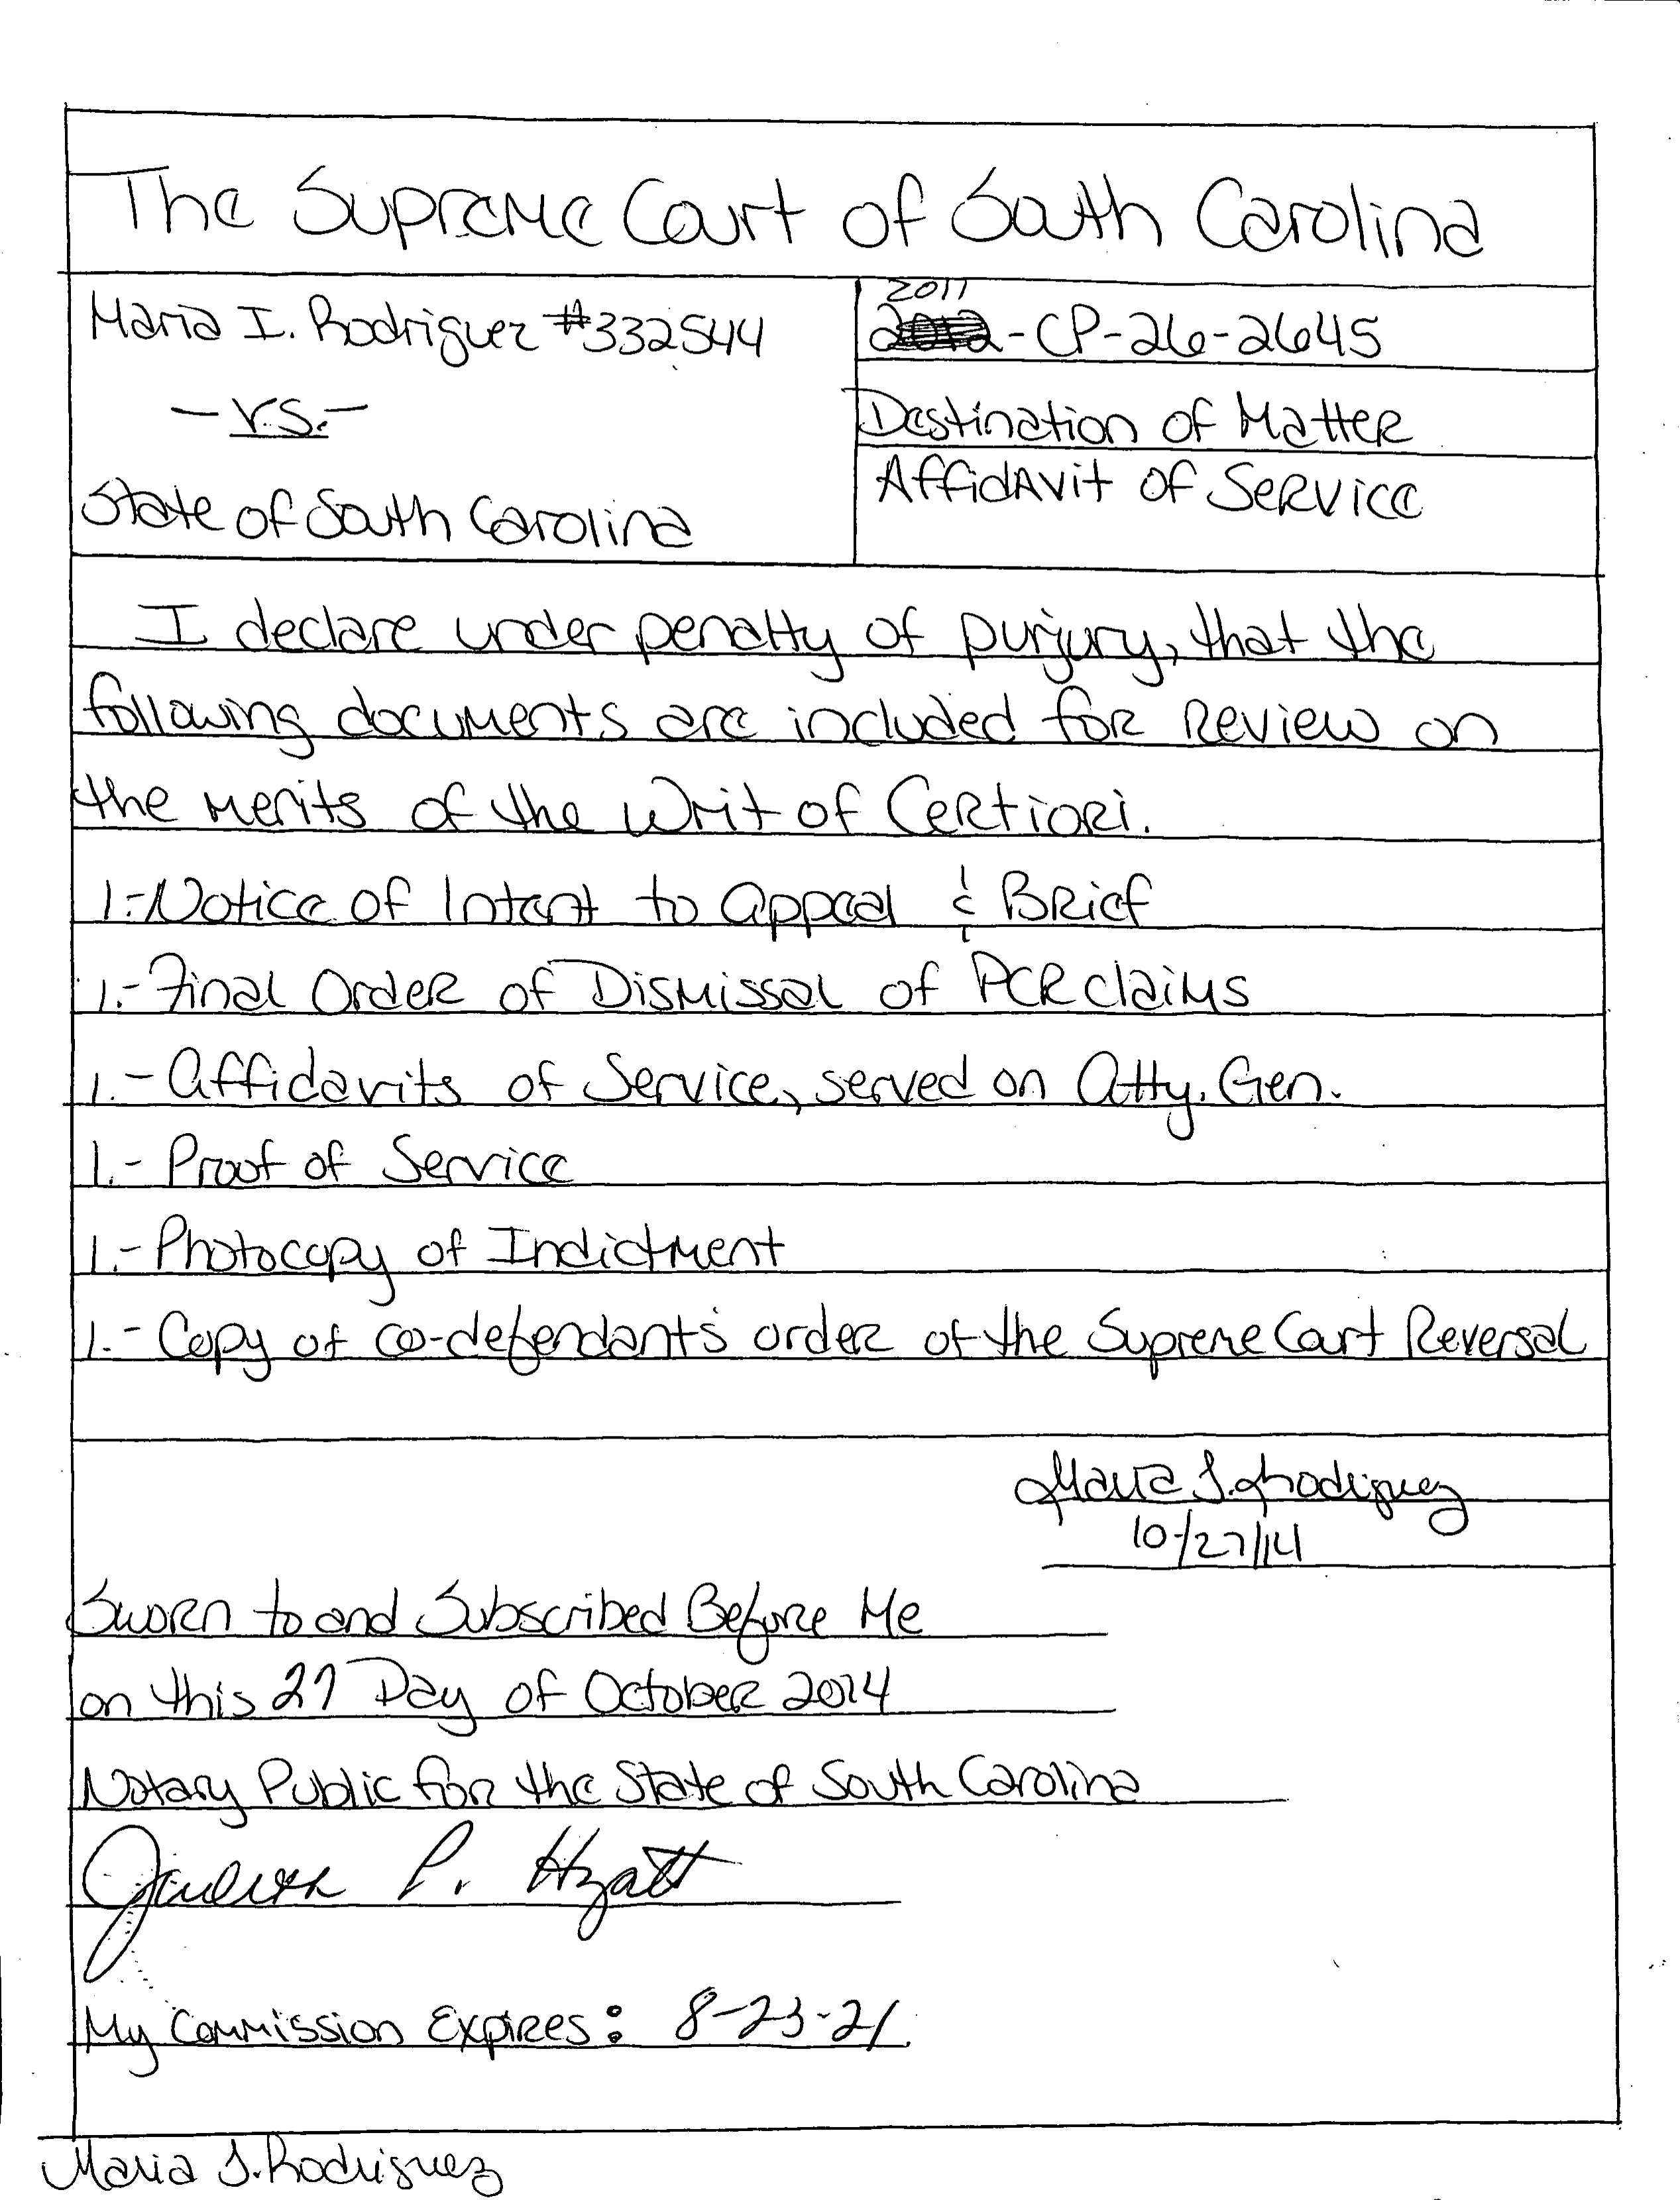 The Supreme Court of South Carolina
Maria I. Rodriguez #332544
-vs.-
State of South Carolina
2011
2012-CP-26-2645
Destination of Matter
Affidavit of Service
I declare under penalty of purjury, that the
following documents are included for Review on
the merits of the Writ of Certiori.
1.-Notice of Intent to appeal & Brief
1.- Final Order of Dismissal of PCR claims
1.- Affidavits of Service, served on Atty. Gen.
1.- Proof of Service
1.- Photocopy of Indictment
1.- Copy of co-defendant's order of the Supreme Court Reversal
Maria I. Rodriguez
10/27/14
Sworn to and Subscribed Before Me
on this 27 Day of October 2014
Notary Public for the State of South Carolina
P. Hyatt
My Commission Expires: 8-23-21
Maria I. Rodriguez